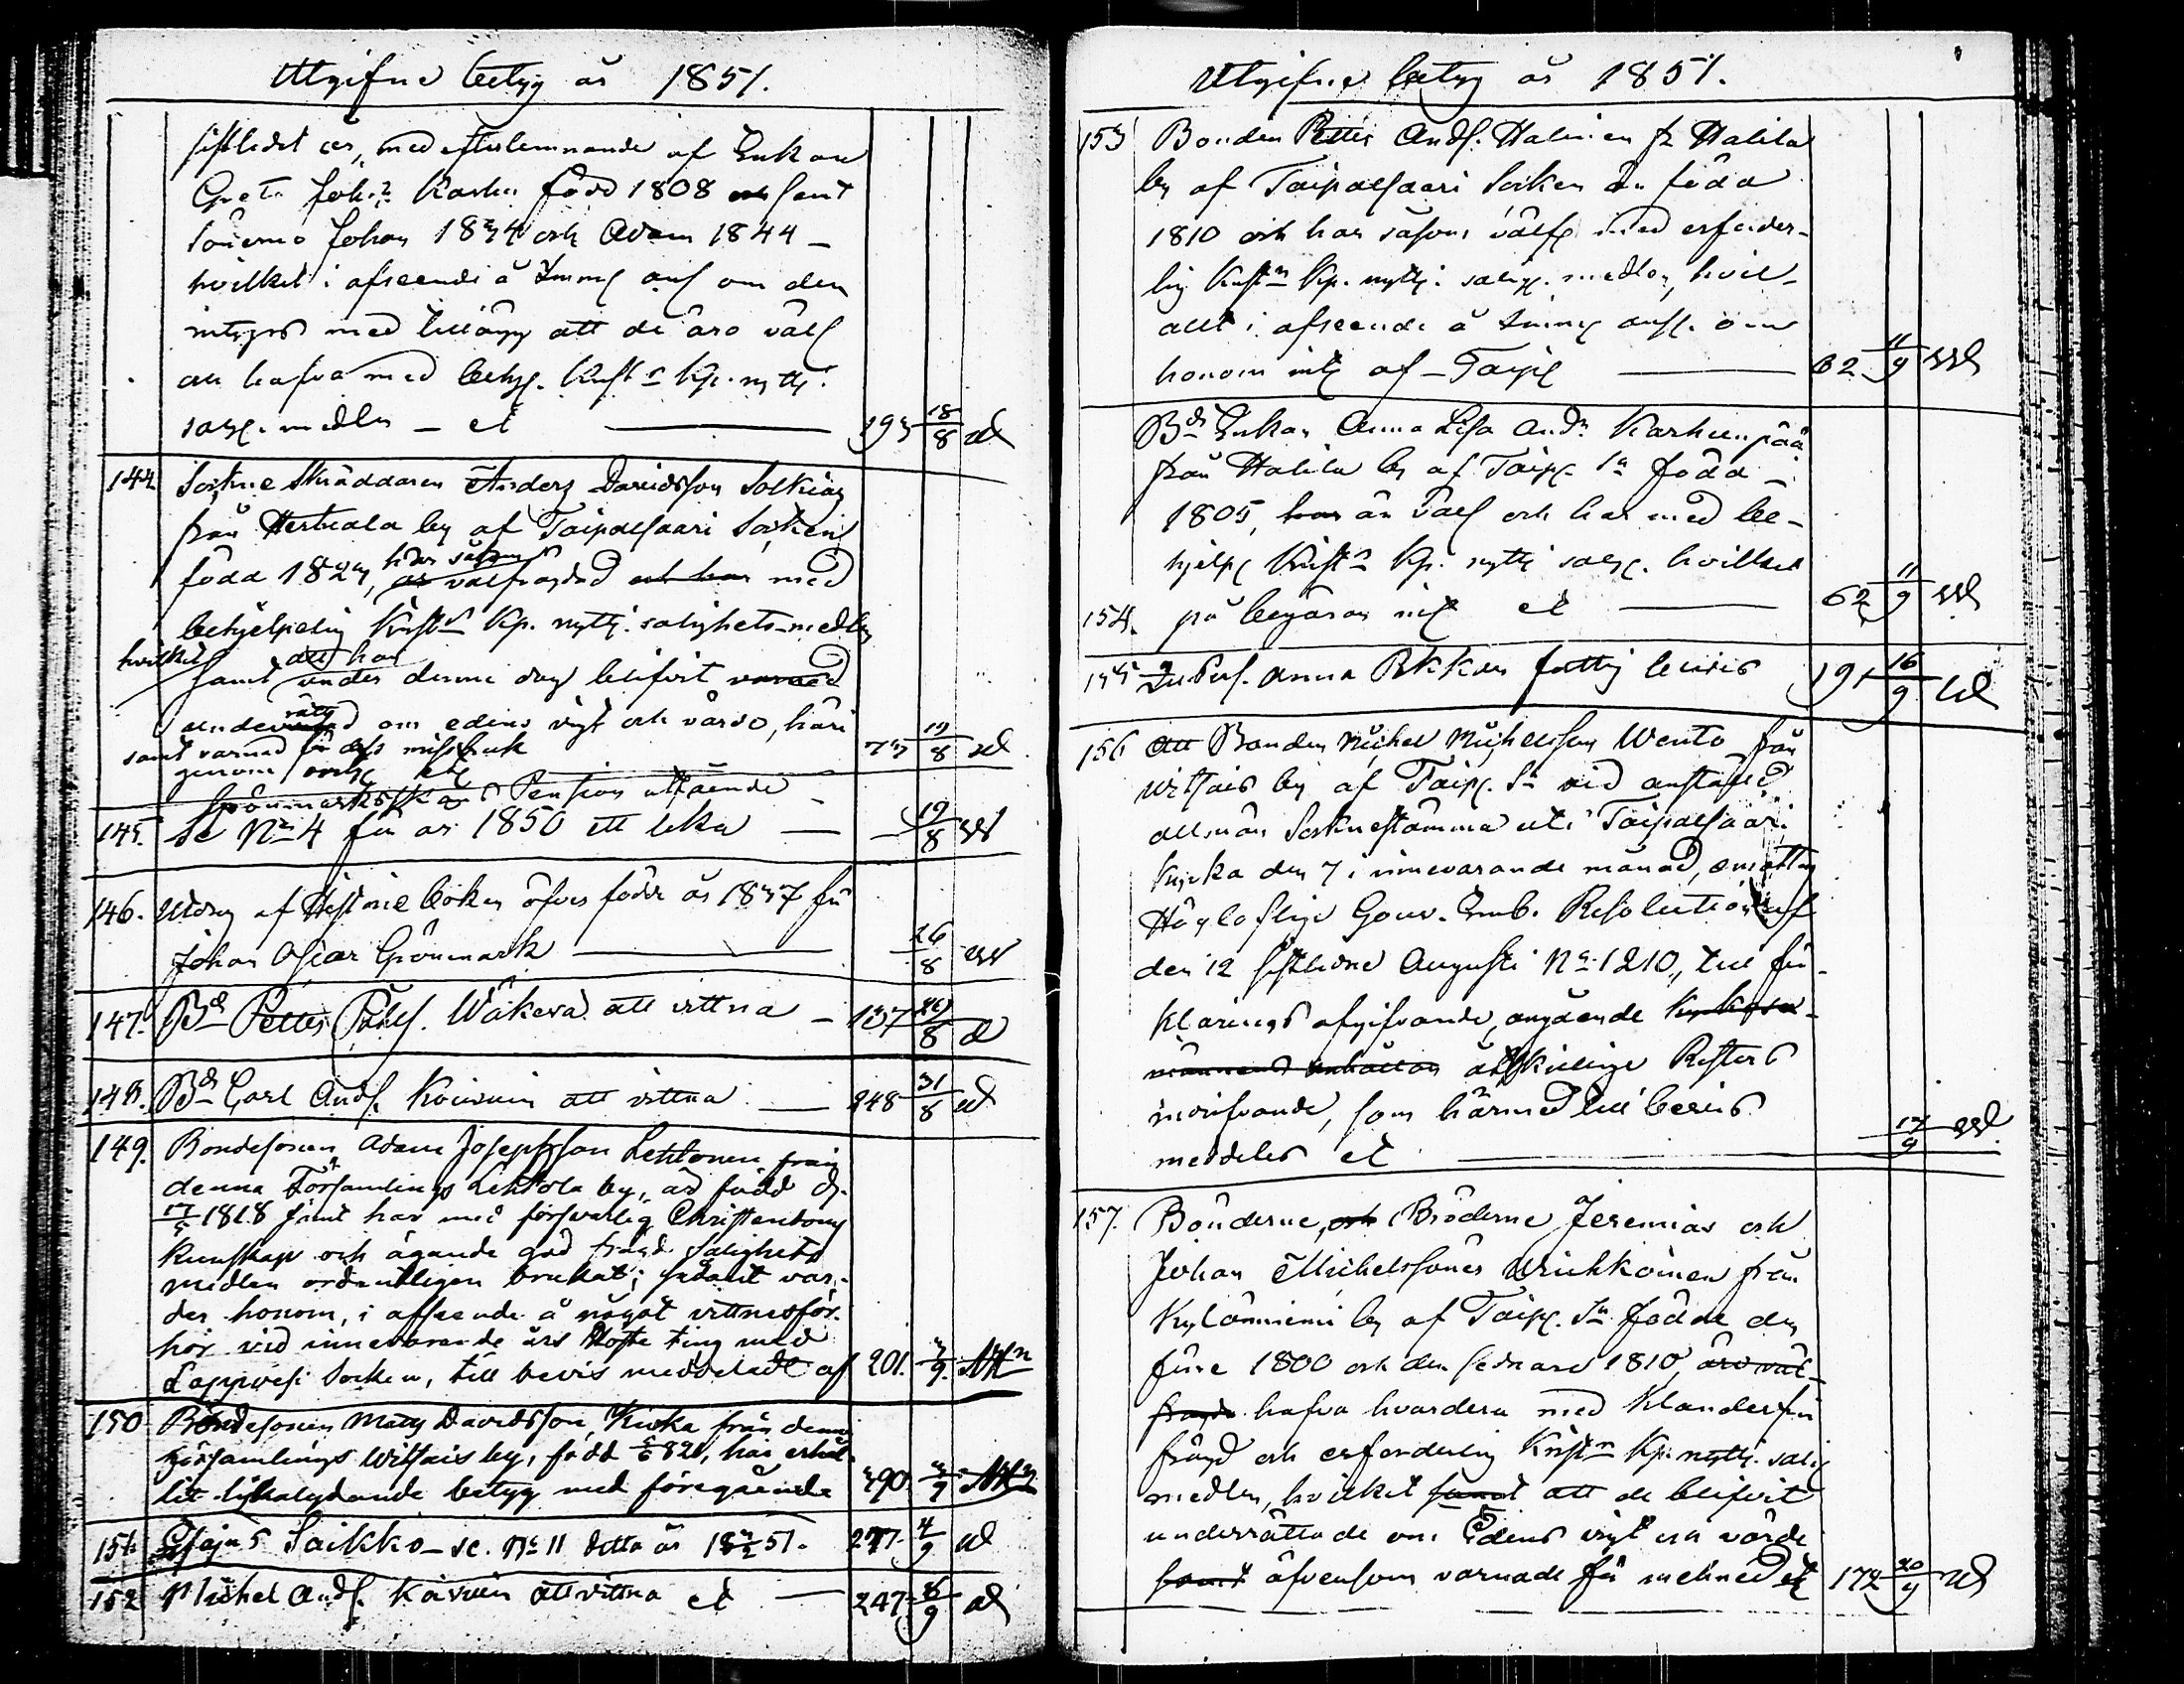 Utgifne betyg år 1851.
sistledet år, med efterlemnande af Enkan
Greta Joh:s Karhu född 1808 och samt
sönerne Johan 1834 och Adam 1844 –
hvilket i afseende å om den
intygas med tillägg att de äro välf
och hafva med behje. Krist:s Kp. nyttj.
salige. medlen – et 193 18/8 
144 Sockne Skräddaren Anders Davidsson Solkian
från Herttuala by af Taipalsaari Socken
född 1823, är välfrägdad och har med
behjelpelig Krist:s Kp. nyttj. salighets-medlen
hvilket samt att han under denne dag blifvit varnad
underrättad om edens vigt och värde, häri
samt varnad för dess missbruk 73 19/8
genom etc
Grönmarks Pension utfående
145. se N:o 4 för år 1850 ett lika — 19/8
146. Utdrag af Historie boken öfver födde år 1837 för
Johan Oscar Grönmark — 26/8
147. B:d Petter Påhls. Wäkevä att vittna – 137 29/8
148. B:d Carl Ands. Koivuin att vittna — 248 31/8
149. Bondesonen Adam Josephsson Lehtonen från
denna Församlings Lehtola by, är född d.
17/5 1818 samt har med försvarlig Christendoms
Kunskap och ägande god frägd Salighets
medlen ordentligen brukat; sådant var-
der honom, i afseende å något vittnesför-
hör vid innevarande års Höste ting med
Lappvesi Socken, till bevis meddeladt af 201. 3/9.
150 Bondesonen Matts Davidsson Kiuka från denna
Församlings Witsais by, född 820, har erhål-
lit likalydande betyg med föregående 290 3/9
151. Saikko – se N:o 11 detta år 1851. 277. 4/9
152 Michel Ands. Koivuin att vittna et — 247 6/9
Utgifne betyg år 1851.
153 Bonden Petter Ands. Halinen fr Halila
by af Taipalsaari Socken är född
1810 och har såsom välf. med erforder-
lig Krist:n Kp. nyttj. salige. medlen, hvil-
allt i afseende å om
honom af – Taipl — 62 11/9
B:d Enkan Anna Lisa And:r Karhunpää
från Halila by af Taip. S:n född –
1805, har är välf och har med be-
hjelpe Krist:s Kp. nyttj salige. hvilket
154. på begäran et — 62 11/9
155 Anna Pekkan fattig bevis 191 16/9
156 att Bonden Michel Michelsson Wento från
Witsais by af Taip. S:n vid anstäld
allmän Sockenstämma uti Taipalsaari
Kyrka den 7 i innevarande månad, emottog
Höglaflige Gouv. Emb. Resolution af
den 12 sistledne Augusti N:o 1210, till för-
klarings afgifvande, angående Kyrkovä-
åtskillige Resters
indrifvande, som härmed till bevis
meddeles et — 17/9
157. Bönderne, och Bröderne Jeremias och
Johan Michelssöner Wiehkoinen från
Kylänniemi by af Taip. S:n födde den
förre 1800 och den sednare 1810, äro väl-
frägde hafva hvardera med Klanderfri
frägd och erforderlig Krist:n Kp. nyttj. salig
medlen, hvilket samt att de blifvit
underrättade om Edens vigt och värde
samt äfvensom varnade för mehned et 172 20/9